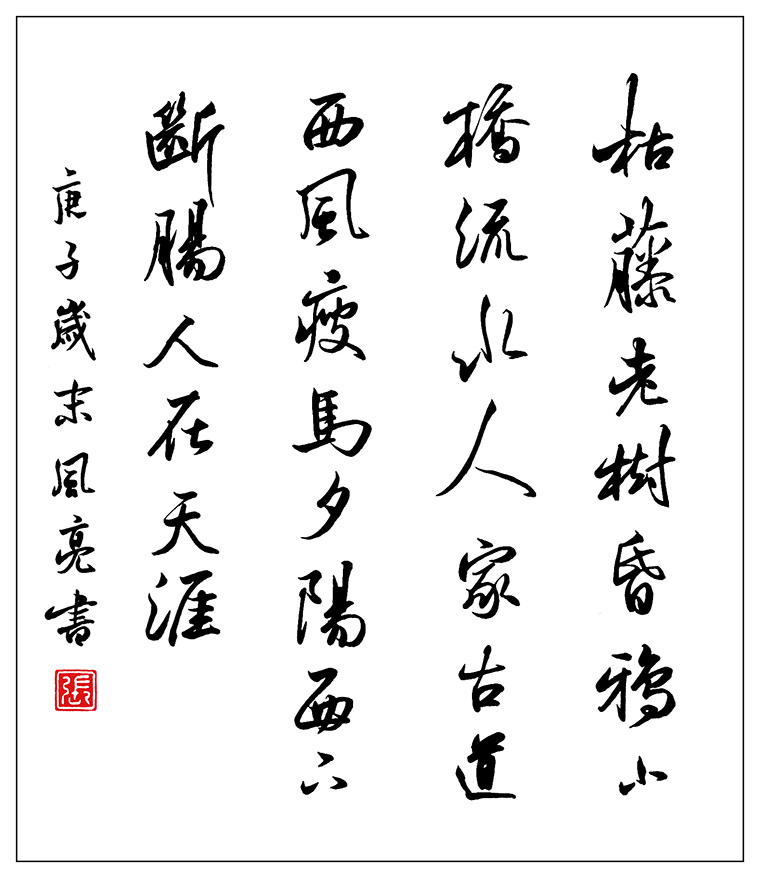 枯藤老樹昏鴉小
橋流水人家古道
西風瘦馬夕陽西下
斷腸人在天涯
庚子歲末風亮書
張